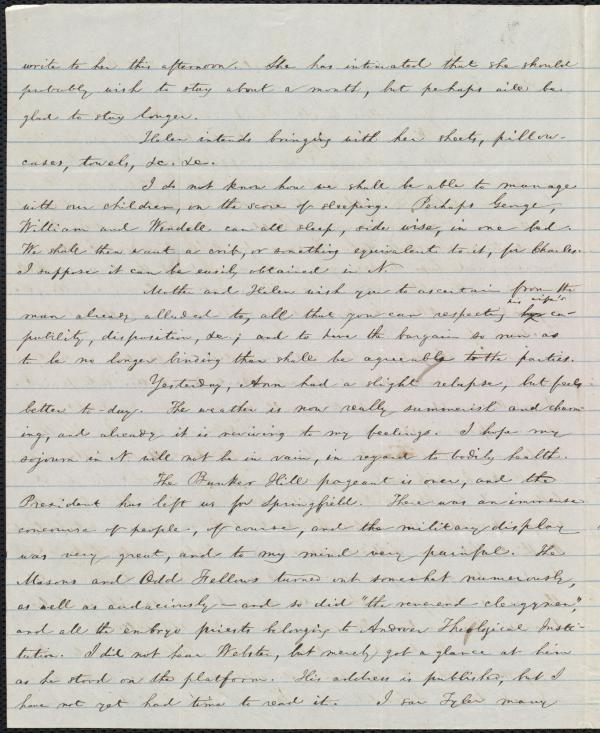 write to her this afternoon. She has intimated that she should
probably wish to stay about a month, but perhaps will be
glad to stay longer.
Helen intends bringing with her sheets, pillow-
cases, towels, &c. &c.
I do not know how we shall be able to manage
with our children, on the score of sleeping. Perhaps George,
William and Wendell can all sleep, side wise, in one bed.
We shall then want a crib, or something equivalent to it, for Charles.
I suppose it can be easily obtained in N.
Mother and Helen wish you to ascertain from the
man already alluded to, all that you can respecting his wife's ca-
pability, disposition, &c.; and to have the bargain so run as
to be no longer binding than shall be agreeable to the parties.
Yesterday, Ann had a slight relapse, but feels
better to-day. The weather is now really summerish and charm-
ing, and already it is reviving to my feelings. I hope my
sojourn in N. will not be in vain, in regard to bodily health.
The Bunker Hill pageant is over, and the
President has left us for Springfield. There was an immense
concourse of people, of course, and the military display
was very great, and to my mind very painful. The
Masons and Odd Fellows turned out somewhat numerously,
as well as audaciously—and so did "the reverend clergymen",
and all the embryo priests belonging to Andover Theological Insti-
tution. I did not hear Webster, but merely got a glance at him
as he stood on the platform. His address is published, but I
have not yet had time to read it. I saw Tyler many